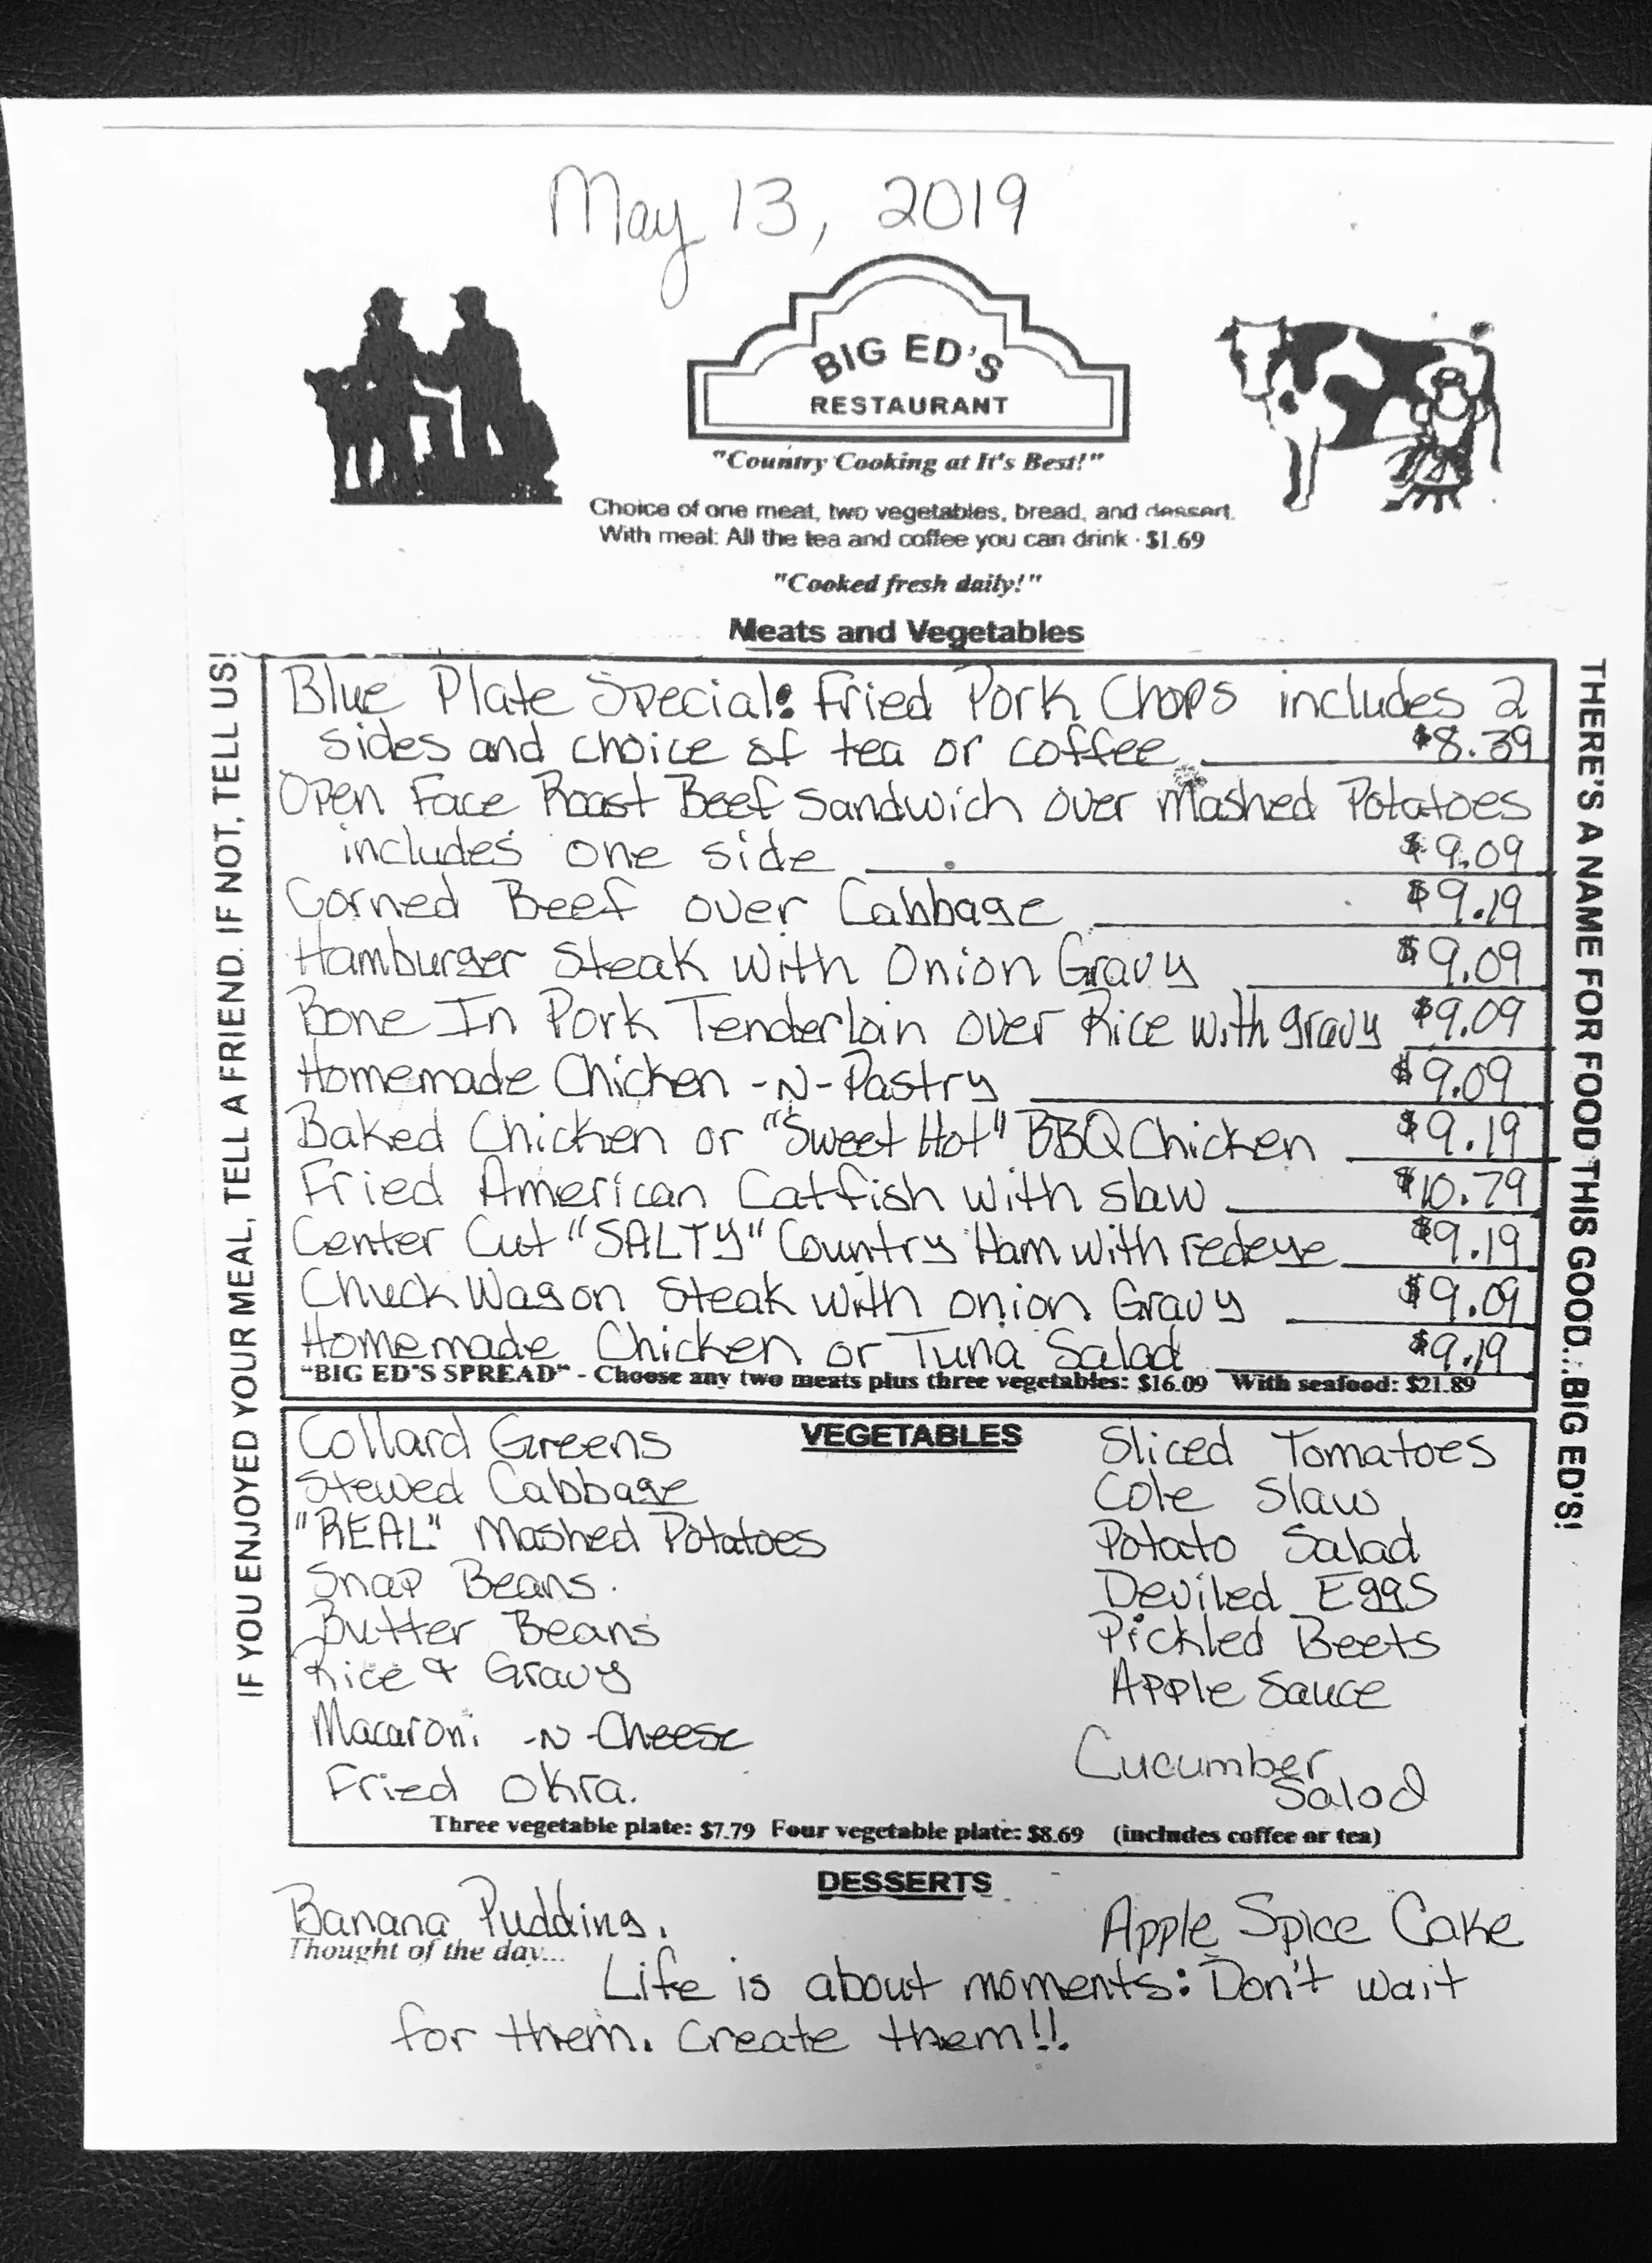 May 13, 2019
BIG ED'S
RESTAURANT
"Country Cooking at It's Best!"
Choice of one meat, two vegetables, bread, and dessert.
With meal: All the tea and coffee you can drink · $1.69
"Cooked fresh daily!"
Meats and Vegetables
IF YOU ENJOYED YOUR MEAL, TELL A FRIEND. IF NOT, TELL US!
Blue Plate Special: Fried Pork Chops includes 2
sides and choice of tea or coffee $8.39
Open Face Roast Beef Sandwich over Mashed Potatoes
includes one side $9.09
Corned Beef over Cabbage $9.19
Hamburger Steak with Onion Gravy $9.09
Bone In Pork Tenderloin over Rice with gravy $9.09
Homemade Chicken -N- Pastry $9.09
Baked Chicken or "Sweet Hot" BBQ Chicken $9.19
Fried American Catfish with slaw $10.79
Center Cut "SALTY" Country Ham with redeye $9.19
Chuck Wagon Steak with onion Gravy $9.09
Homemade Chicken or Tuna Salad $9.19
"BIG ED'S SPREAD" - Choose any two meats plus three vegetables: $16.09 With seafood: $21.89
THERE'S A NAME FOR FOOD THIS GOOD...BIG ED'S!
VEGETABLES
Collard Greens
Stewed Cabbage
"REAL" Mashed Potatoes
Snap Beans
Butter Beans
Rice & Gravy
Macaroni -N- Cheese
Fried Okra.
Sliced Tomatoes
Cole Slaw
Potato Salad
Deviled Eggs
Pickled Beets
Apple Sauce
Cucumber
Salad
Three vegetable plate: $7.79 Four vegetable plate: $8.69 (includes coffee or tea)
DESSERTS
Banana Pudding. Apple Spice Cake
Thought of the day...
Life is about moments: Don't wait
for them. Create them!!